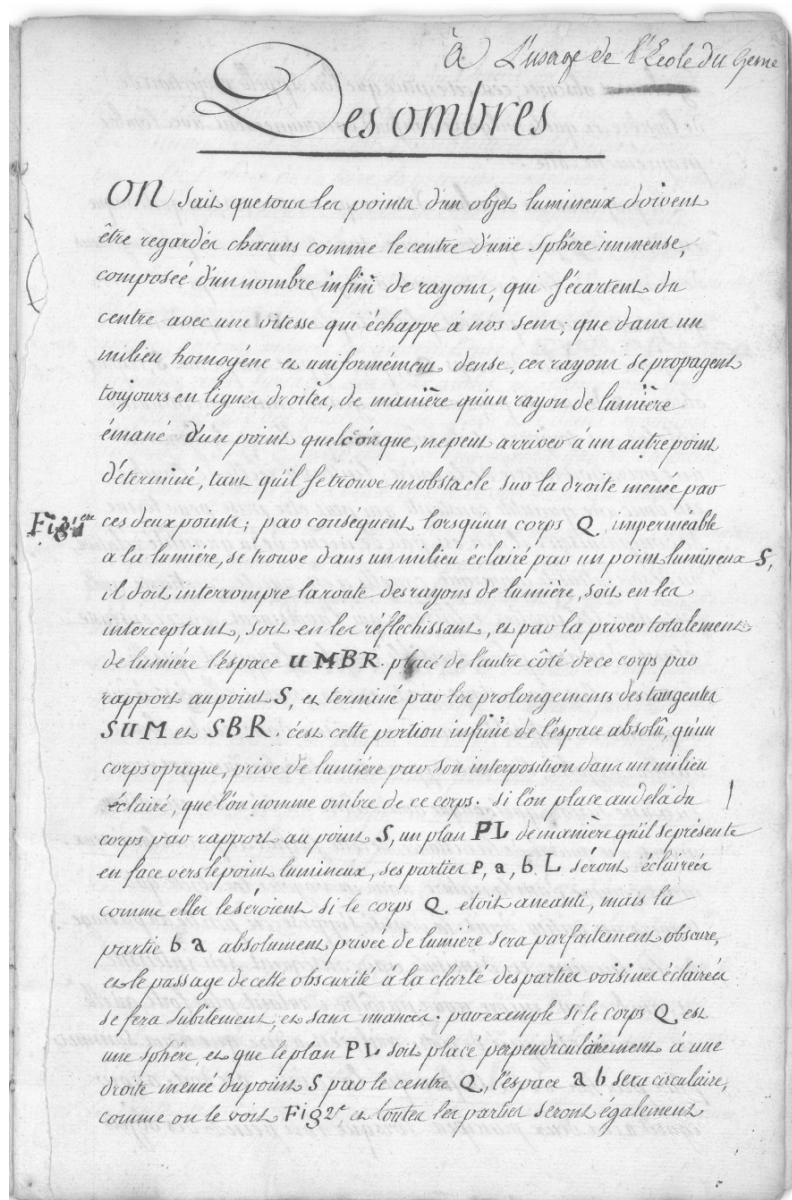 à L'usage de l'Ecole du Genie
Des ombres
ON sait que tous les points d'un objet lumineux doivent
être regardés chacuns comme le centre d'une sphère immense,
composée d'un nombre infini de rayons, qui s'écartent du
centre avec une vitesse qui échappe à nos sens; que dans un
milieu homogéne et uniformément dense, ces rayons se propagent
toujours en lignes droites, de manière qu'un rayon de lumière
émané d'un point quelconque, ne peut arriver à un autre point
déterminé, tant qu'il se trouve un obstacle sur la droite menée par
Fig. 1ere
ces deux points; par conséquent lorsqu'un corps Q, imperméable
a la lumiére, se trouve dans un milieu éclairé par un point lumineux S,
il doit interrompre la route des rayons de lumière, soit en les
interceptant, soit en les réflechissant, et par la priver totalement
de lumiére l'espace UMBR. placé de l'autre côté de ce corps par
rapport au point S, et terminé par les prolongements des tangentes
SUM et SBR. c'est cette portion infinie de l'espace absolû, qu'un
corps opaque, prive de lumiére par son interposition dans un milieu
éclairé, que l'on nomme ombre de ce corps. si l'on place au delà du
corps par rapport au point S, un plan PL de maniére qu'il se présente
en face vers le point lumineux, ses parties P, a, b, L séront éclairées
comme elles le séroient si le corps Q etoit aneanti, mais la
partie ba absolument privée de lumière sera parfaitement obscure,
et le passage de cette obscurité à la clarté des parties voisines éclairées
se fera subitement, et sans nuances. par exemple si le corps Q est
une sphère, et que le plan PL soit placé perpendiculairement à une
droite menée du point S par le centre Q, l'espace ab sera circulaire,
comme on le voit Fig 2e et toutes les parties seront également